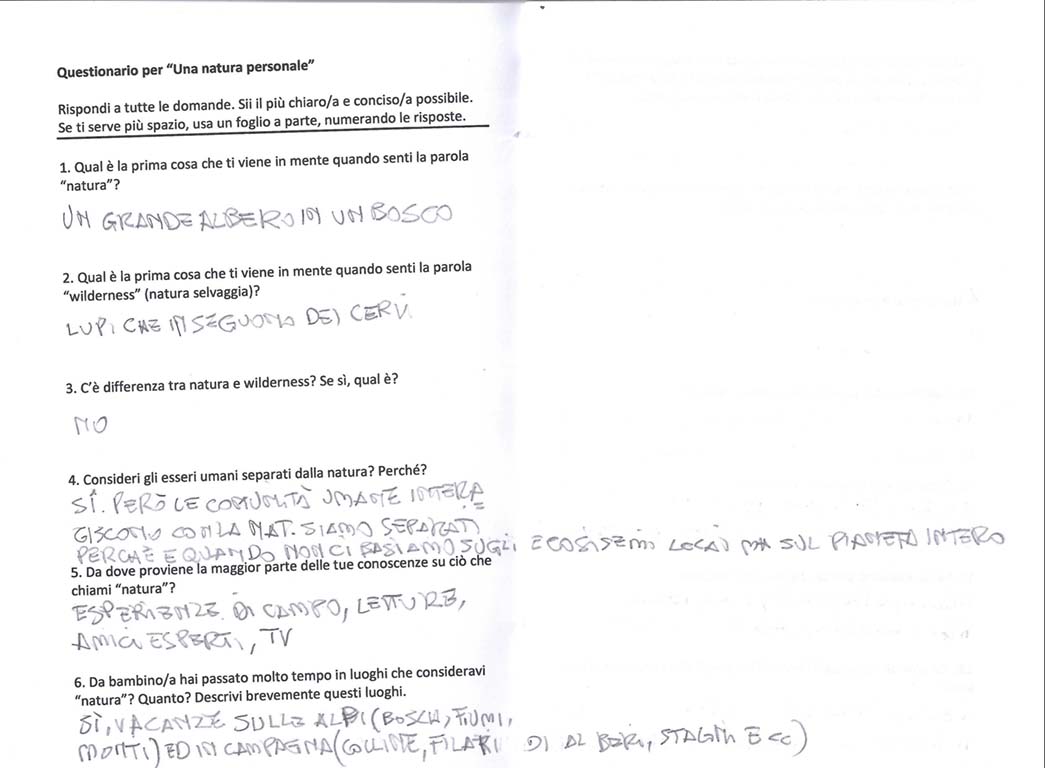 Questionario per “Una natura personale”
Rispondi a tutte le domande. Sii il più chiaro/a e conciso/a possibile.
Se ti serve più spazio, usa un foglio a parte, numerando le risposte.
1. Qual è la prima cosa che ti viene in mente quando senti la parola
“natura”?
UN GRANDE ALBERO IN UN BOSCO
2. Qual è la prima cosa che ti viene in mente quando senti la parola
“wilderness” (natura selvaggia)?
LUPI CHE INSEGUONO DEI CERVI
3. C’è differenza tra natura e wilderness? Se sì, qual è?
NO
4. Consideri gli esseri umani separati dalla natura? Perché?
SÌ. PERÒ LE COMUNITÀ UMANE INTERA=
GISCONO CON LA NAT. SIAMO SEPARATI
PERCHÈ E QUANDO NON CI BASIAMO SUGLI ECOSISTEMI LOCALI MA SUL PIANETA INTERO
5. Da dove proviene la maggior parte delle tue conoscenze su ciò che
chiami “natura”?
ESPERIENZE DI CAMPO, LETTURE,
AMICI ESPERTI, TV
6. Da bambino/a hai passato molto tempo in luoghi che consideravi
“natura”? Quanto? Descrivi brevemente questi luoghi.
SÌ, VACANZE SULLE ALPI (BOSCHI, FIUMI,
MONTI) ED IN CAMPAGNA (COLLINE, FILARI DI ALBERI, STAGNI ECC)